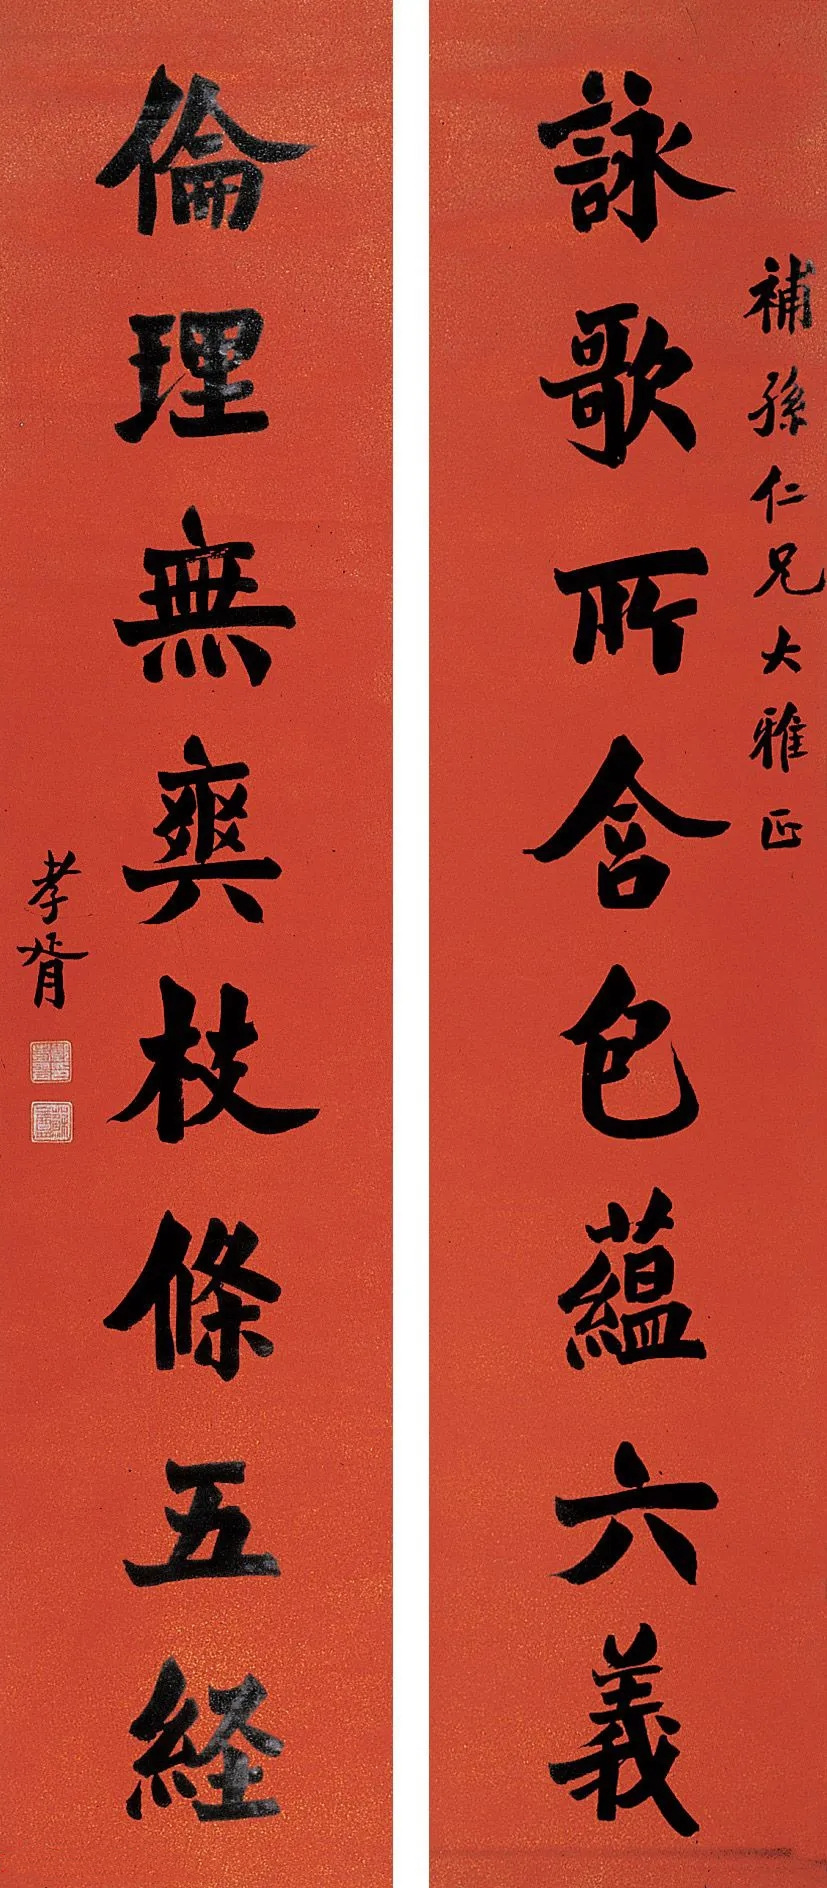 補孫仁兄大雅正
詠歌所含包蘊六義
倫理無爽枝條五経
孝胥